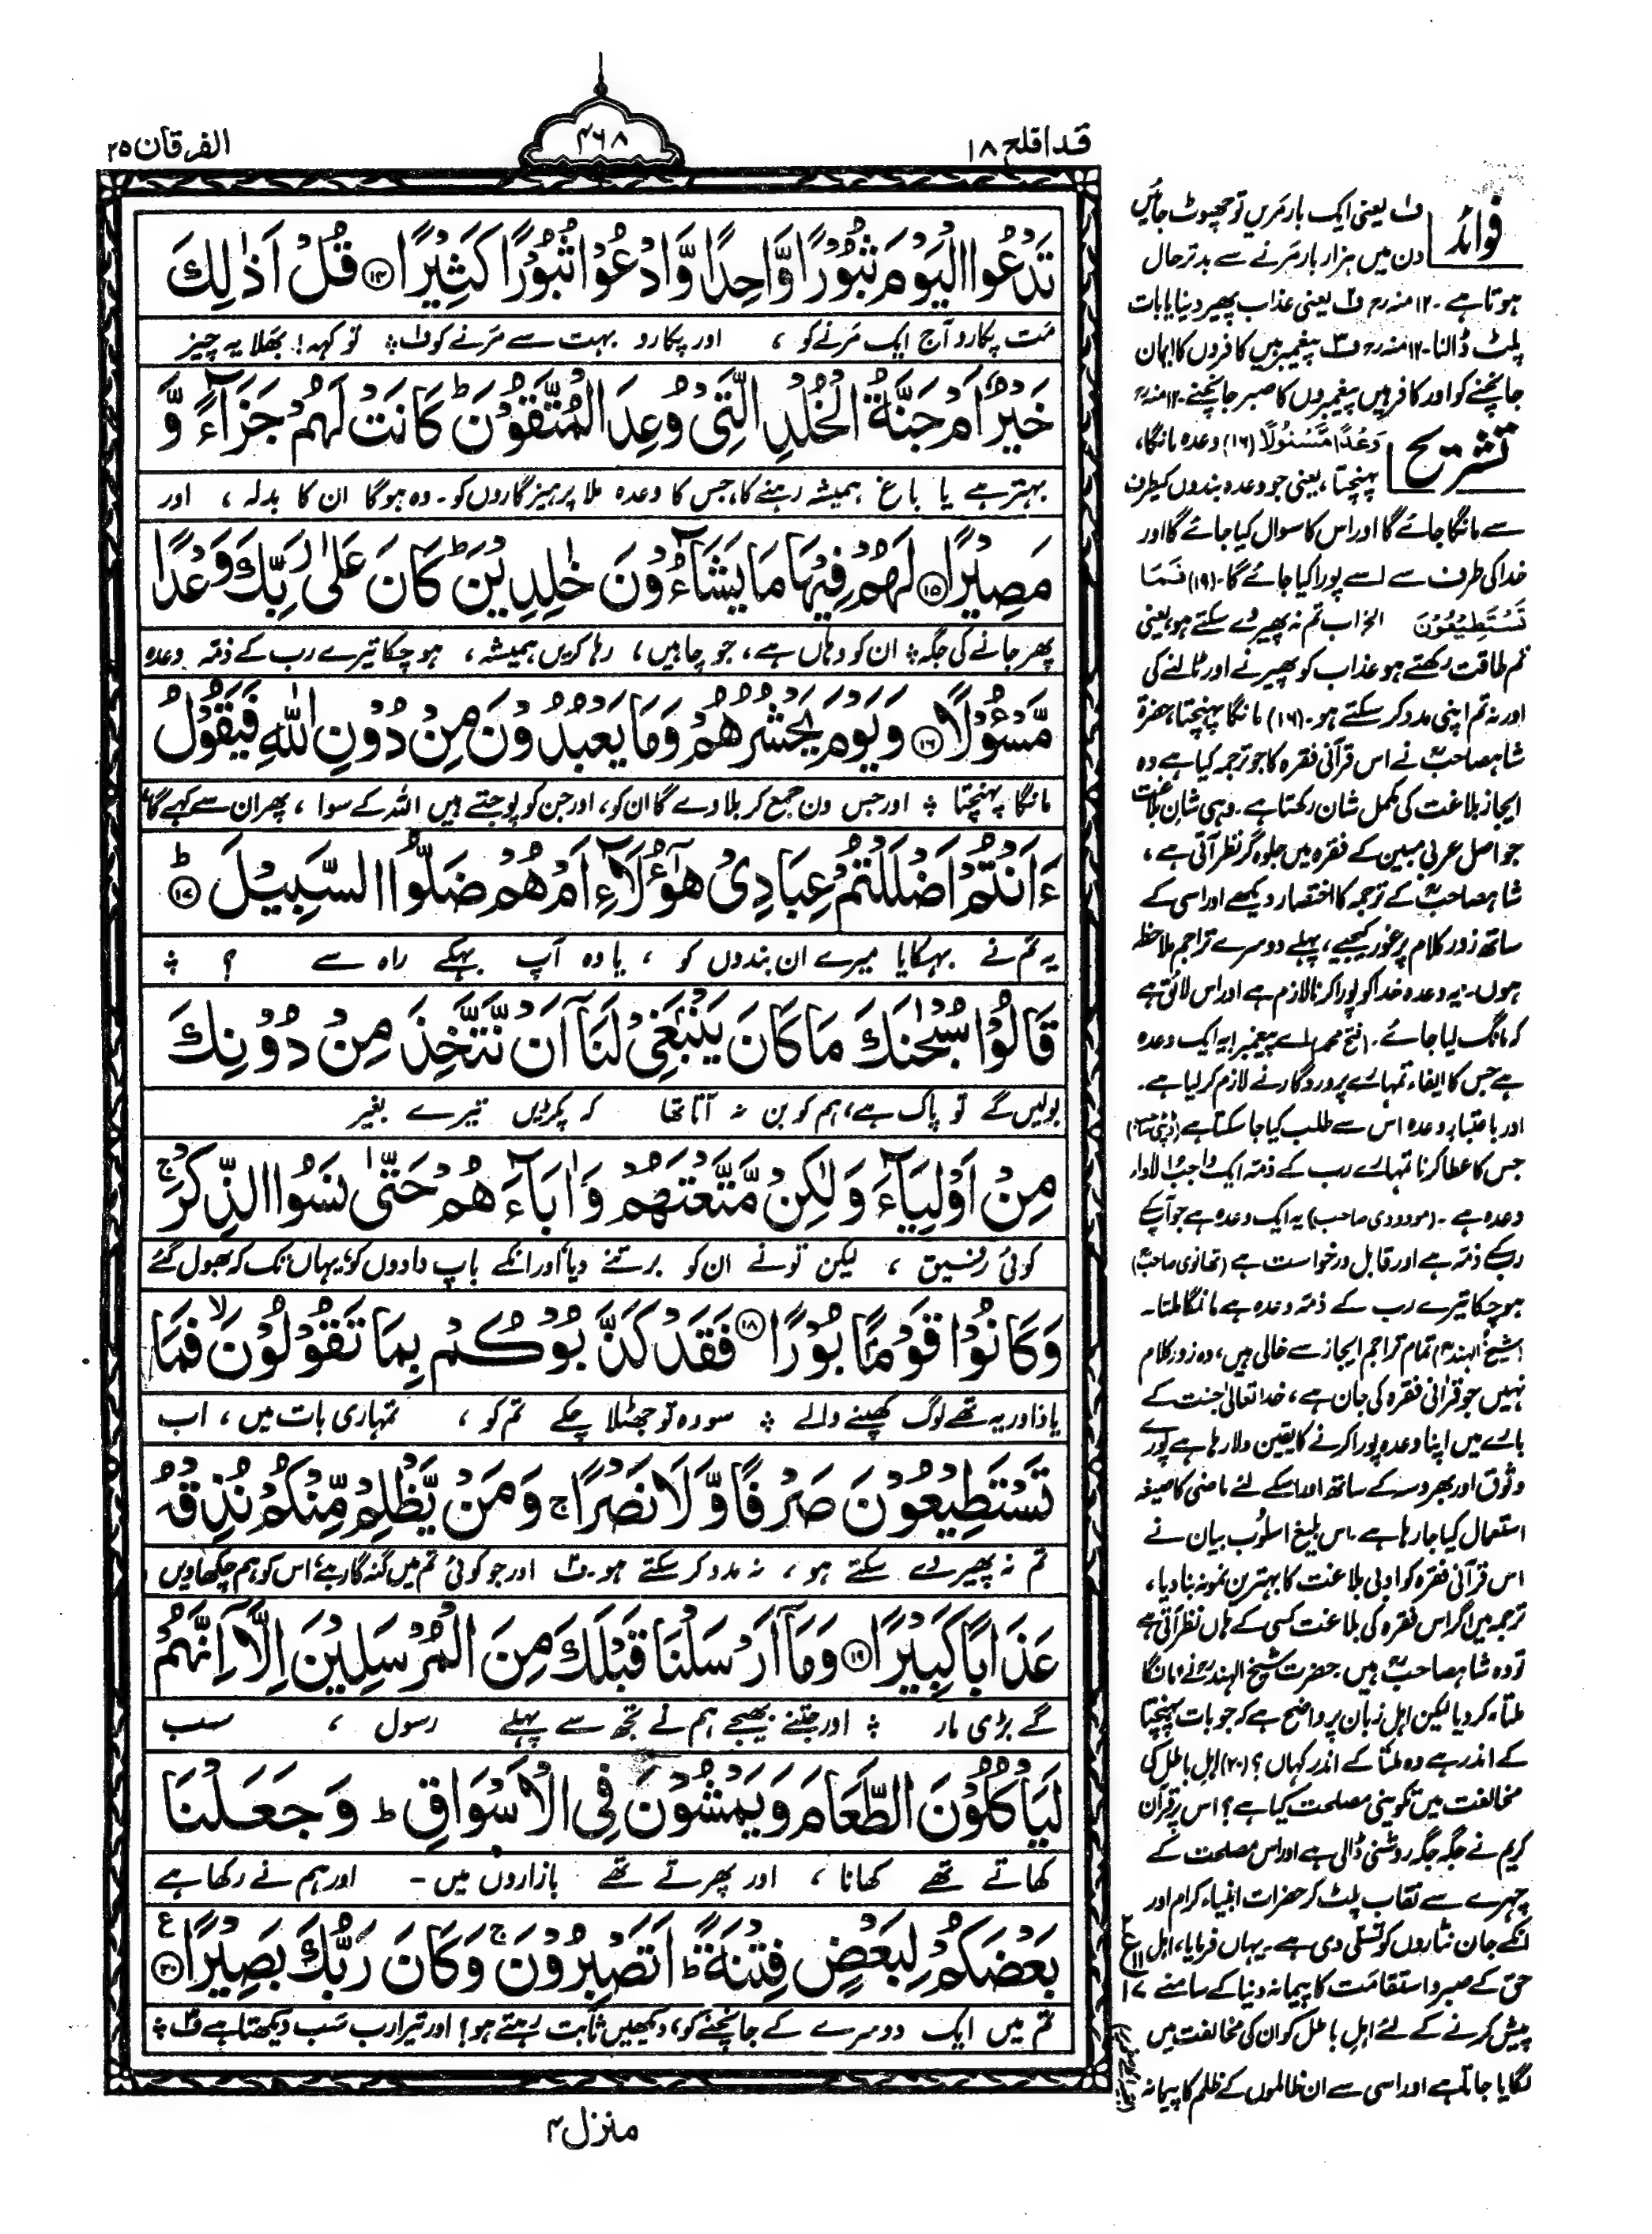 قد افلح ١٨
٤٦٨
الفرقان ٢٥
تَدْعُوا الْيَوْمَ ثُبُوْرًا وَّاحِدًا وَّادْعُوْا ثُبُوْرًا كَثِيْرًا ﴿١٤﴾ قُلْ اَذٰلِكَ
مت پکارو آج ایک مرنے کو ، اور پکارو بہت سے مرنے کو ف۱ ؞ تو کہہ! بھلا یہ چیز
خَيْرٌ اَمْ جَنَّةُ الْخُلْدِ الَّتِيْ وُعِدَ الْمُتَّقُوْنَ ؕ كَانَتْ لَهُمْ جَزَآءً وَّ
بہتر ہے یا باغ ہمیشہ رہنے کا، جس کا وعدہ ملا پرہیزگاروں کو ۔ وہ ہوگا ان کا بدلہ ، اور
مَصِيْرًا ﴿١٥﴾ لَهُمْ فِيْهَا مَا يَشَآءُوْنَ خٰلِدِيْنَ ؕ كَانَ عَلٰى رَبِّكَ وَعْدًا
پھر جانے کی جگہ ؞ ان کو وہاں ہے، جو چاہیں ، رہا کریں ہمیشہ ، ہو چکا تیرے رب کے ذمہ وعدہ
مَّسْـُٔوْلًا ﴿١٦﴾ وَيَوْمَ يَحْشُرُهُمْ وَمَا يَعْبُدُوْنَ مِنْ دُوْنِ اللّٰهِ فَيَقُوْلُ
مانگا پہنچتا ؞ اور جس دن جمع کر بلاوے گا ان کو، اور جن کو پوجتے ہیں اللہ کے سوا ، پھر ان سے کہے گا
ءَاَنْتُمْ اَضْلَلْتُمْ عِبَادِيْ هٰٓؤُلَآءِ اَمْ هُمْ ضَلُّوا السَّبِيْلَ ﴿١٧﴾ؕ
یہ تم نے بہکایا میرے ان بندوں کو ، یا وہ آپ بہکے راہ سے ؟ ؞
قَالُوْا سُبْحٰنَكَ مَا كَانَ يَنْۢبَغِيْ لَنَآ اَنْ نَّتَّخِذَ مِنْ دُوْنِكَ
بولیں گے تو پاک ہے، ہم کو بن نہ آتا تھا کہ پکڑیں تیرے بغیر
مِنْ اَوْلِيَآءَ وَلٰكِنْ مَّتَّعْتَهُمْ وَاٰبَآءَهُمْ حَتّٰى نَسُوا الذِّكْرَ ۚ
کوئی رفیق ، لیکن تو نے ان کو برتنے دیا اور انکے باپ دادوں کو، یہاں تک کہ بھول گئے
وَكَانُوْا قَوْمًۢا بُوْرًا ﴿١٨﴾ فَقَدْ كَذَّبُوْكُمْ بِمَا تَقُوْلُوْنَ ۙ فَمَا
یاد اور یہ تھے لوگ کھپنے والے ؞ سو وہ تو جھٹلا چکے تم کو ، تمہاری بات میں ، اب
تَسْتَطِيْعُوْنَ صَرْفًا وَّلَا نَصْرًا ۚ وَمَنْ يَّظْلِمْ مِّنْكُمْ نُذِقْهُ
تم نہ پھیر دے سکتے ہو ، نہ مدد کر سکتے ہو ۔ ف۲ اور جو کوئی تم میں گنہگار ہے، اس کو ہم چکھاویں
عَذَابًا كَبِيْرًا ﴿١٩﴾ وَمَآ اَرْسَلْنَا قَبْلَكَ مِنَ الْمُرْسَلِيْنَ اِلَّآ اِنَّهُمْ
گے بڑی مار ؞ اور جتنے بھیجے ہم نے تجھ سے پہلے رسول ، سب
لَيَاْكُلُوْنَ الطَّعَامَ وَيَمْشُوْنَ فِي الْاَسْوَاقِ ؕ وَجَعَلْنَا
کھاتے تھے کھانا ، اور پھرتے تھے بازاروں میں ۔ اور ہم نے رکھا ہے
بَعْضَكُمْ لِبَعْضٍ فِتْنَةً ؕ اَتَصْبِرُوْنَ ۚ وَكَانَ رَبُّكَ بَصِيْرًا ﴿٢٠﴾ ع
تم میں ایک دوسرے کے جانچنے کو، دیکھیں ثابت رہتے ہو؟ اور تیرا رب سب دیکھتا ہے ف۳ ؞
منزل ۴
فوائد
ف۱ یعنی ایک بار مریں تو چھوٹ جائیں
دن میں ہزار بار مرنے سے بدتر حال
ہوتا ہے ۔ ۱۲ منہ رح ف۲ یعنی عذاب پھیر دینا یا بات
پلٹ ڈالنا ۔ ۱۲ منہ رح ف۳ پیغمبر ہیں کافروں کا ایمان
جانچنے کو اور کافر ہیں پیغمبروں کا صبر جانچنے ۔ ۱۲ منہ رح
تشریح
وَعْدًا مَّسْئُولًا (۱۶) وعدہ مانگا،
پہنچتا، یعنی جو وعدہ بندوں کیطرف
سے مانگا جائے گا اور اس کا سوال کیا جائے گا اور
خدا کی طرف سے اسے پورا کیا جائے گا ۔ (۱۹) فَمَا
تَسْتَطِيْعُوْنَ الخ اب تم نہ پھیر دے سکتے ہو، یعنی
تم طاقت رکھتے ہو عذاب کو پھیرنے اور ٹالنے کی
اور نہ تم اپنی مدد کر سکتے ہو ۔ (۱۶) مانگا پہنچتا، حضرۃ
شاہصاحبؒ نے اس قرآنی فقرہ کا جو ترجمہ کیا ہے وہ
ایجاز بلاغت کی مکمل شان رکھتا ہے ۔ وہی شان بلاغت
جو اصل عربی مبین کے فقرہ میں جلوہ گر نظر آتی ہے ،
شاہصاحبؒ کے ترجمہ کا اختصار دیکھے اور اسی کے
ساتھ زور کلام پر غور کیجیے ، پہلے دوسرے تراجم ملاحظہ
ہوں ۔ یہ وعدہ خدا کو پورا کرنا لازم ہے اور اس لائق ہے
کہ مانگ لیا جائے ۔ (فتح محمد) اے پیغمبر! یہ ایک وعدہ
ہے جس کا ایفاء تمہارے پروردگار نے لازم کر لیا ہے ۔
اور باعتبار وعدہ اس سے طلب کیا جا سکتا ہے
جس کا عطا کرنا تمہارے رب کے ذمہ ایک واجب الادا
وعدہ ہے ۔ (مودودی صاحب) یہ ایک وعدہ ہے جو آپ کے
رب کے ذمہ ہے اور قابل درخواست ہے (تھانوی صاحبؒ)
ہو چکا تیرے رب کے ذمہ وعدہ ہے مانگا ملتا ۔
(شیخ الہندؒ) تمام تراجم ایجاز سے خالی ہیں ، وہ زور کلام
نہیں جو قرآنی فقرہ کی جان ہے ، خدا تعالیٰ جنت کے
بارے میں اپنا وعدہ پورا کرنے کا یقین دلا رہا ہے پورے
وثوق اور بھروسہ کے ساتھ اور اسکے لئے ماضی کا صیغہ
استعمال کیا جا رہا ہے ۔ اس بلیغ اسلوب بیان نے
اس قرآنی فقرہ کو ادبی بلاغت کا بہترین نمونہ بنا دیا ،
ترجمہ میں اگر اس فقرہ کی بلاغت کسی کے ہاں نظر آتی ہے
تو وہ شاہصاحبؒ ہیں ۔ حضرت شیخ الہندؒ نے مانگا
ملتا، کر دیا لیکن اہل زبان پر واضح ہے کہ جو بات پہنچتا
کے اندر ہے وہ ملتا کے اندر کہاں ؟ (۲۰) اہل باطل کی
مخالفت میں تکوینی مصلحت کیا ہے ؟ اس پر قرآن
کریم نے جگہ جگہ روشنی ڈالی ہے اور اس مصلحت کے
چہرے سے نقاب پلٹ کر حضرات انبیاء کرام اور
انکے جان نثاروں کو تسلی دی ہے ۔ یہاں فرمایا، اہل
حق کے صبر و استقامت کا پیمانہ دنیا کے سامنے
پیش کرنے کے لئے اہل باطل کو ان کی مخالفت میں
لگایا جاتا ہے اور اسی سے ان ظالموں کے ظلم کا پیمانہ